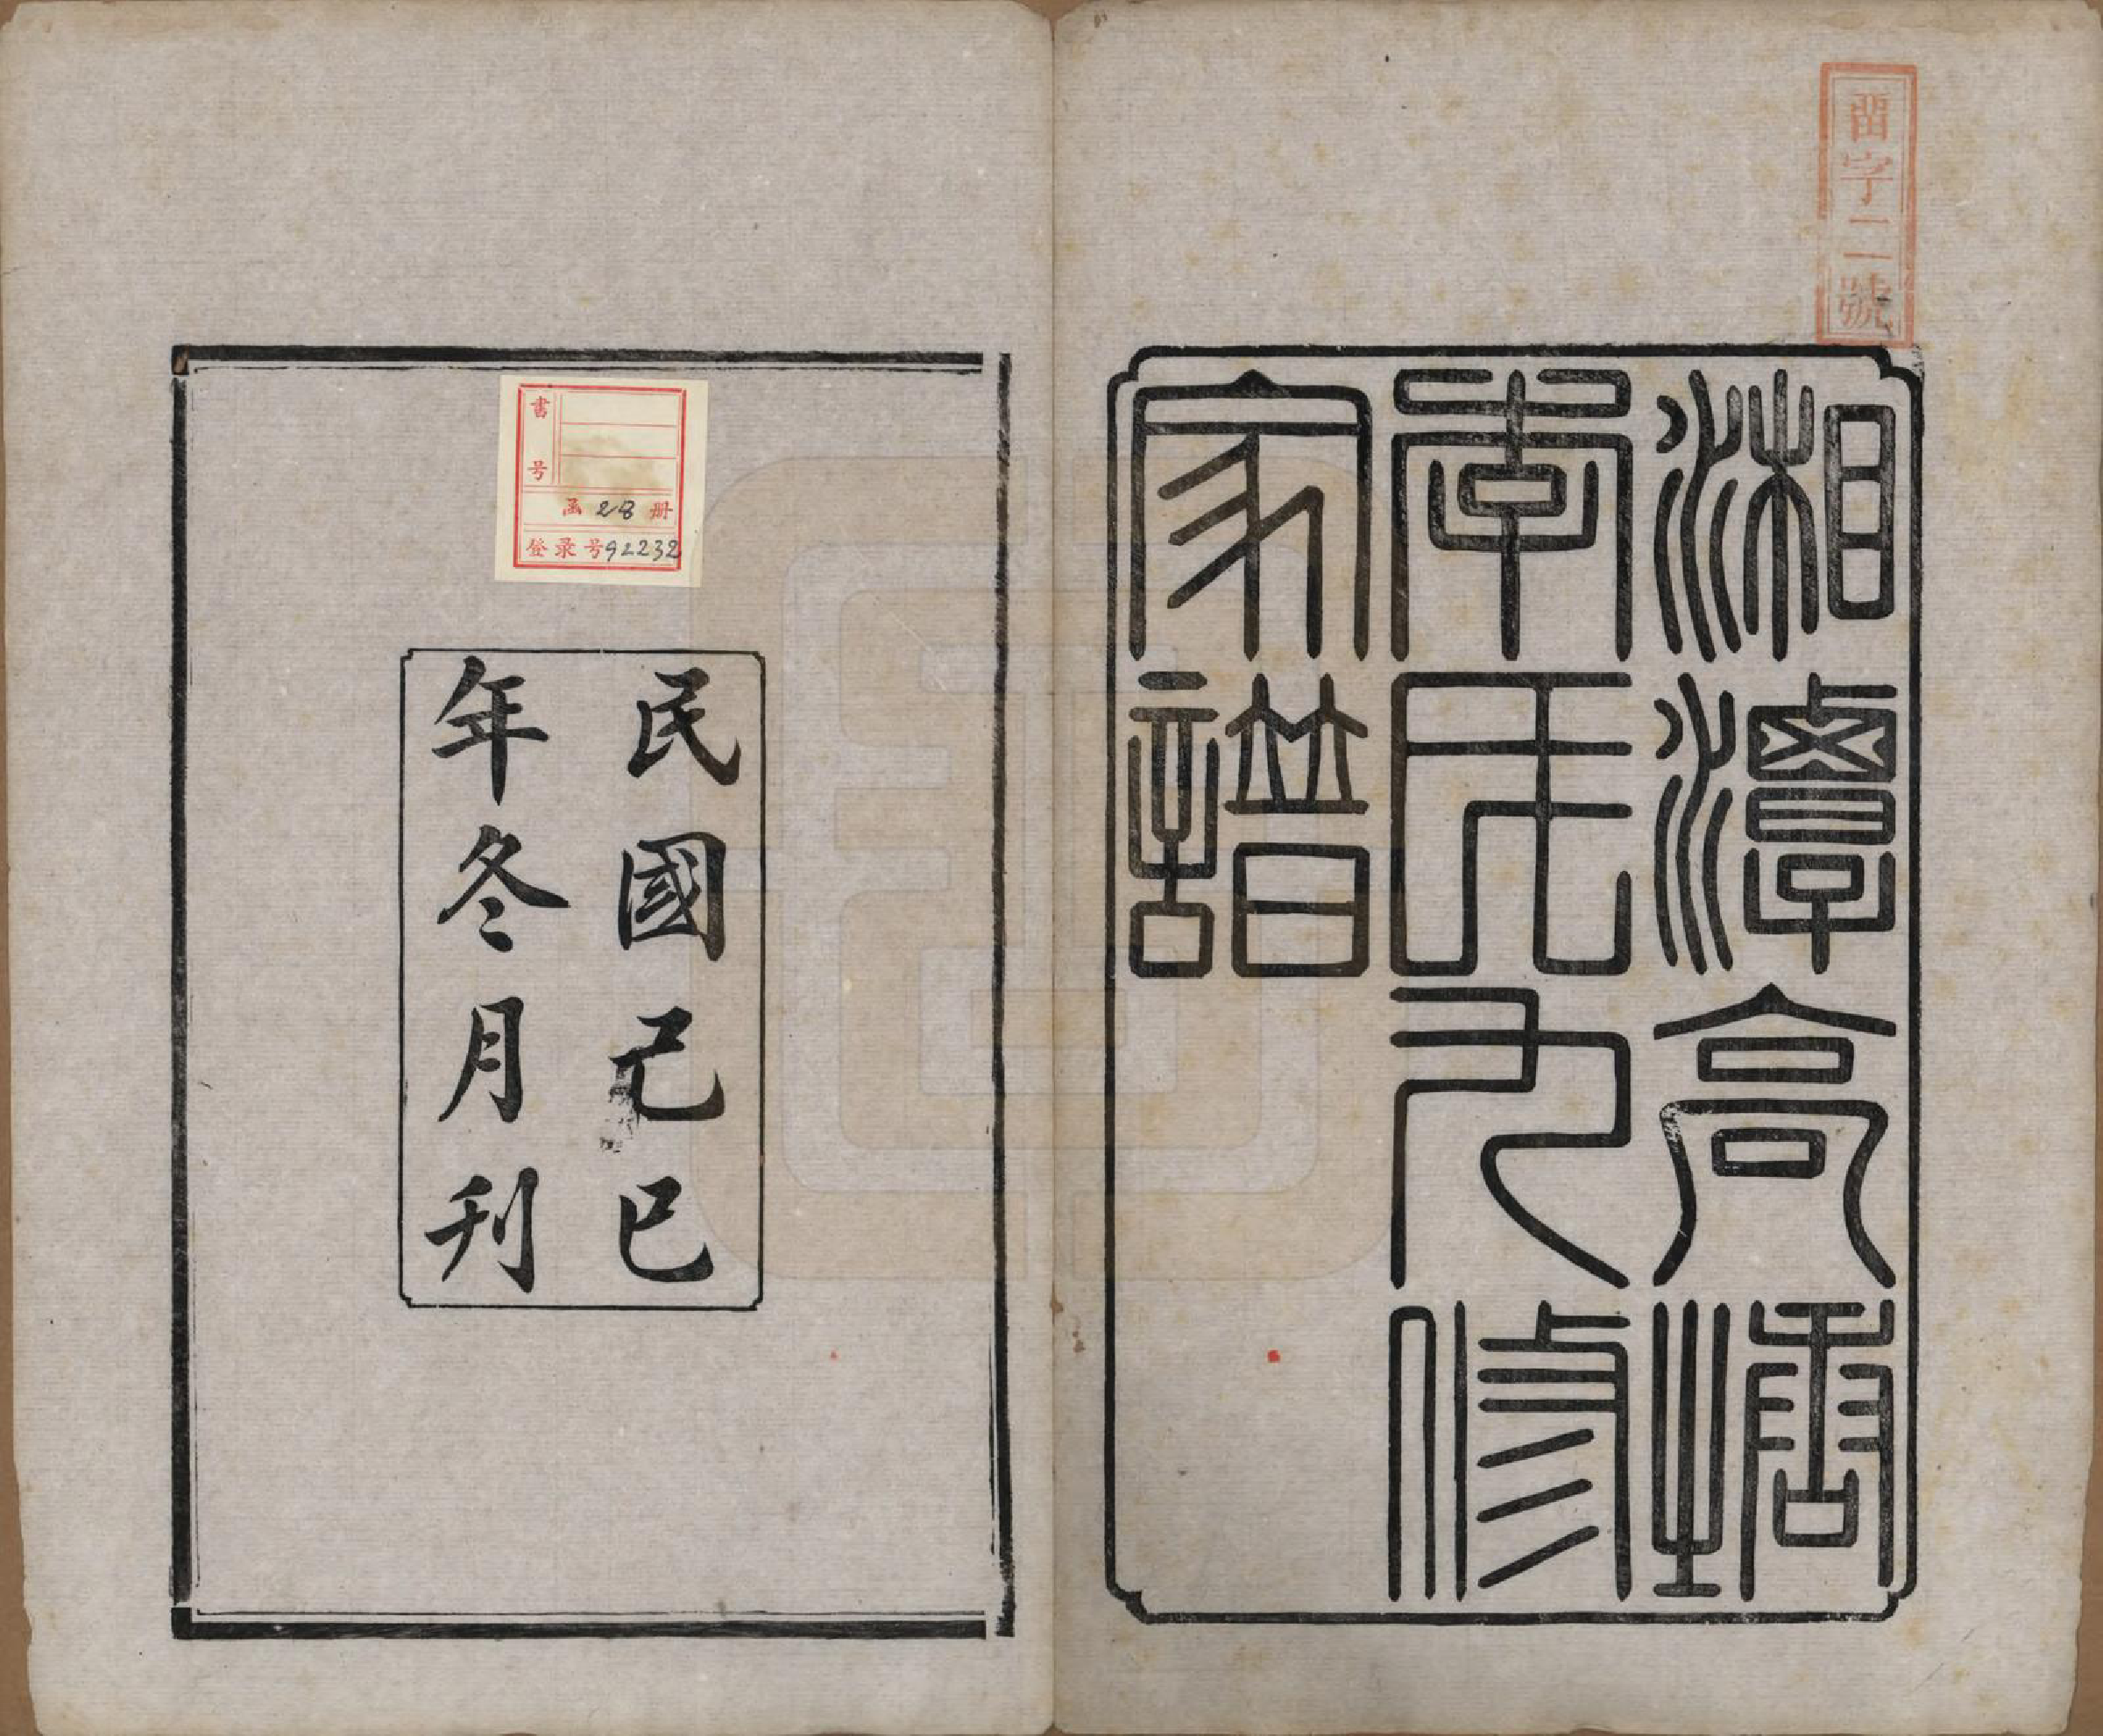 畱字二號
湘潭高塘
李氏九修
家譜
書号
函 28 册
登录号92232
民國己巳
年冬月刊